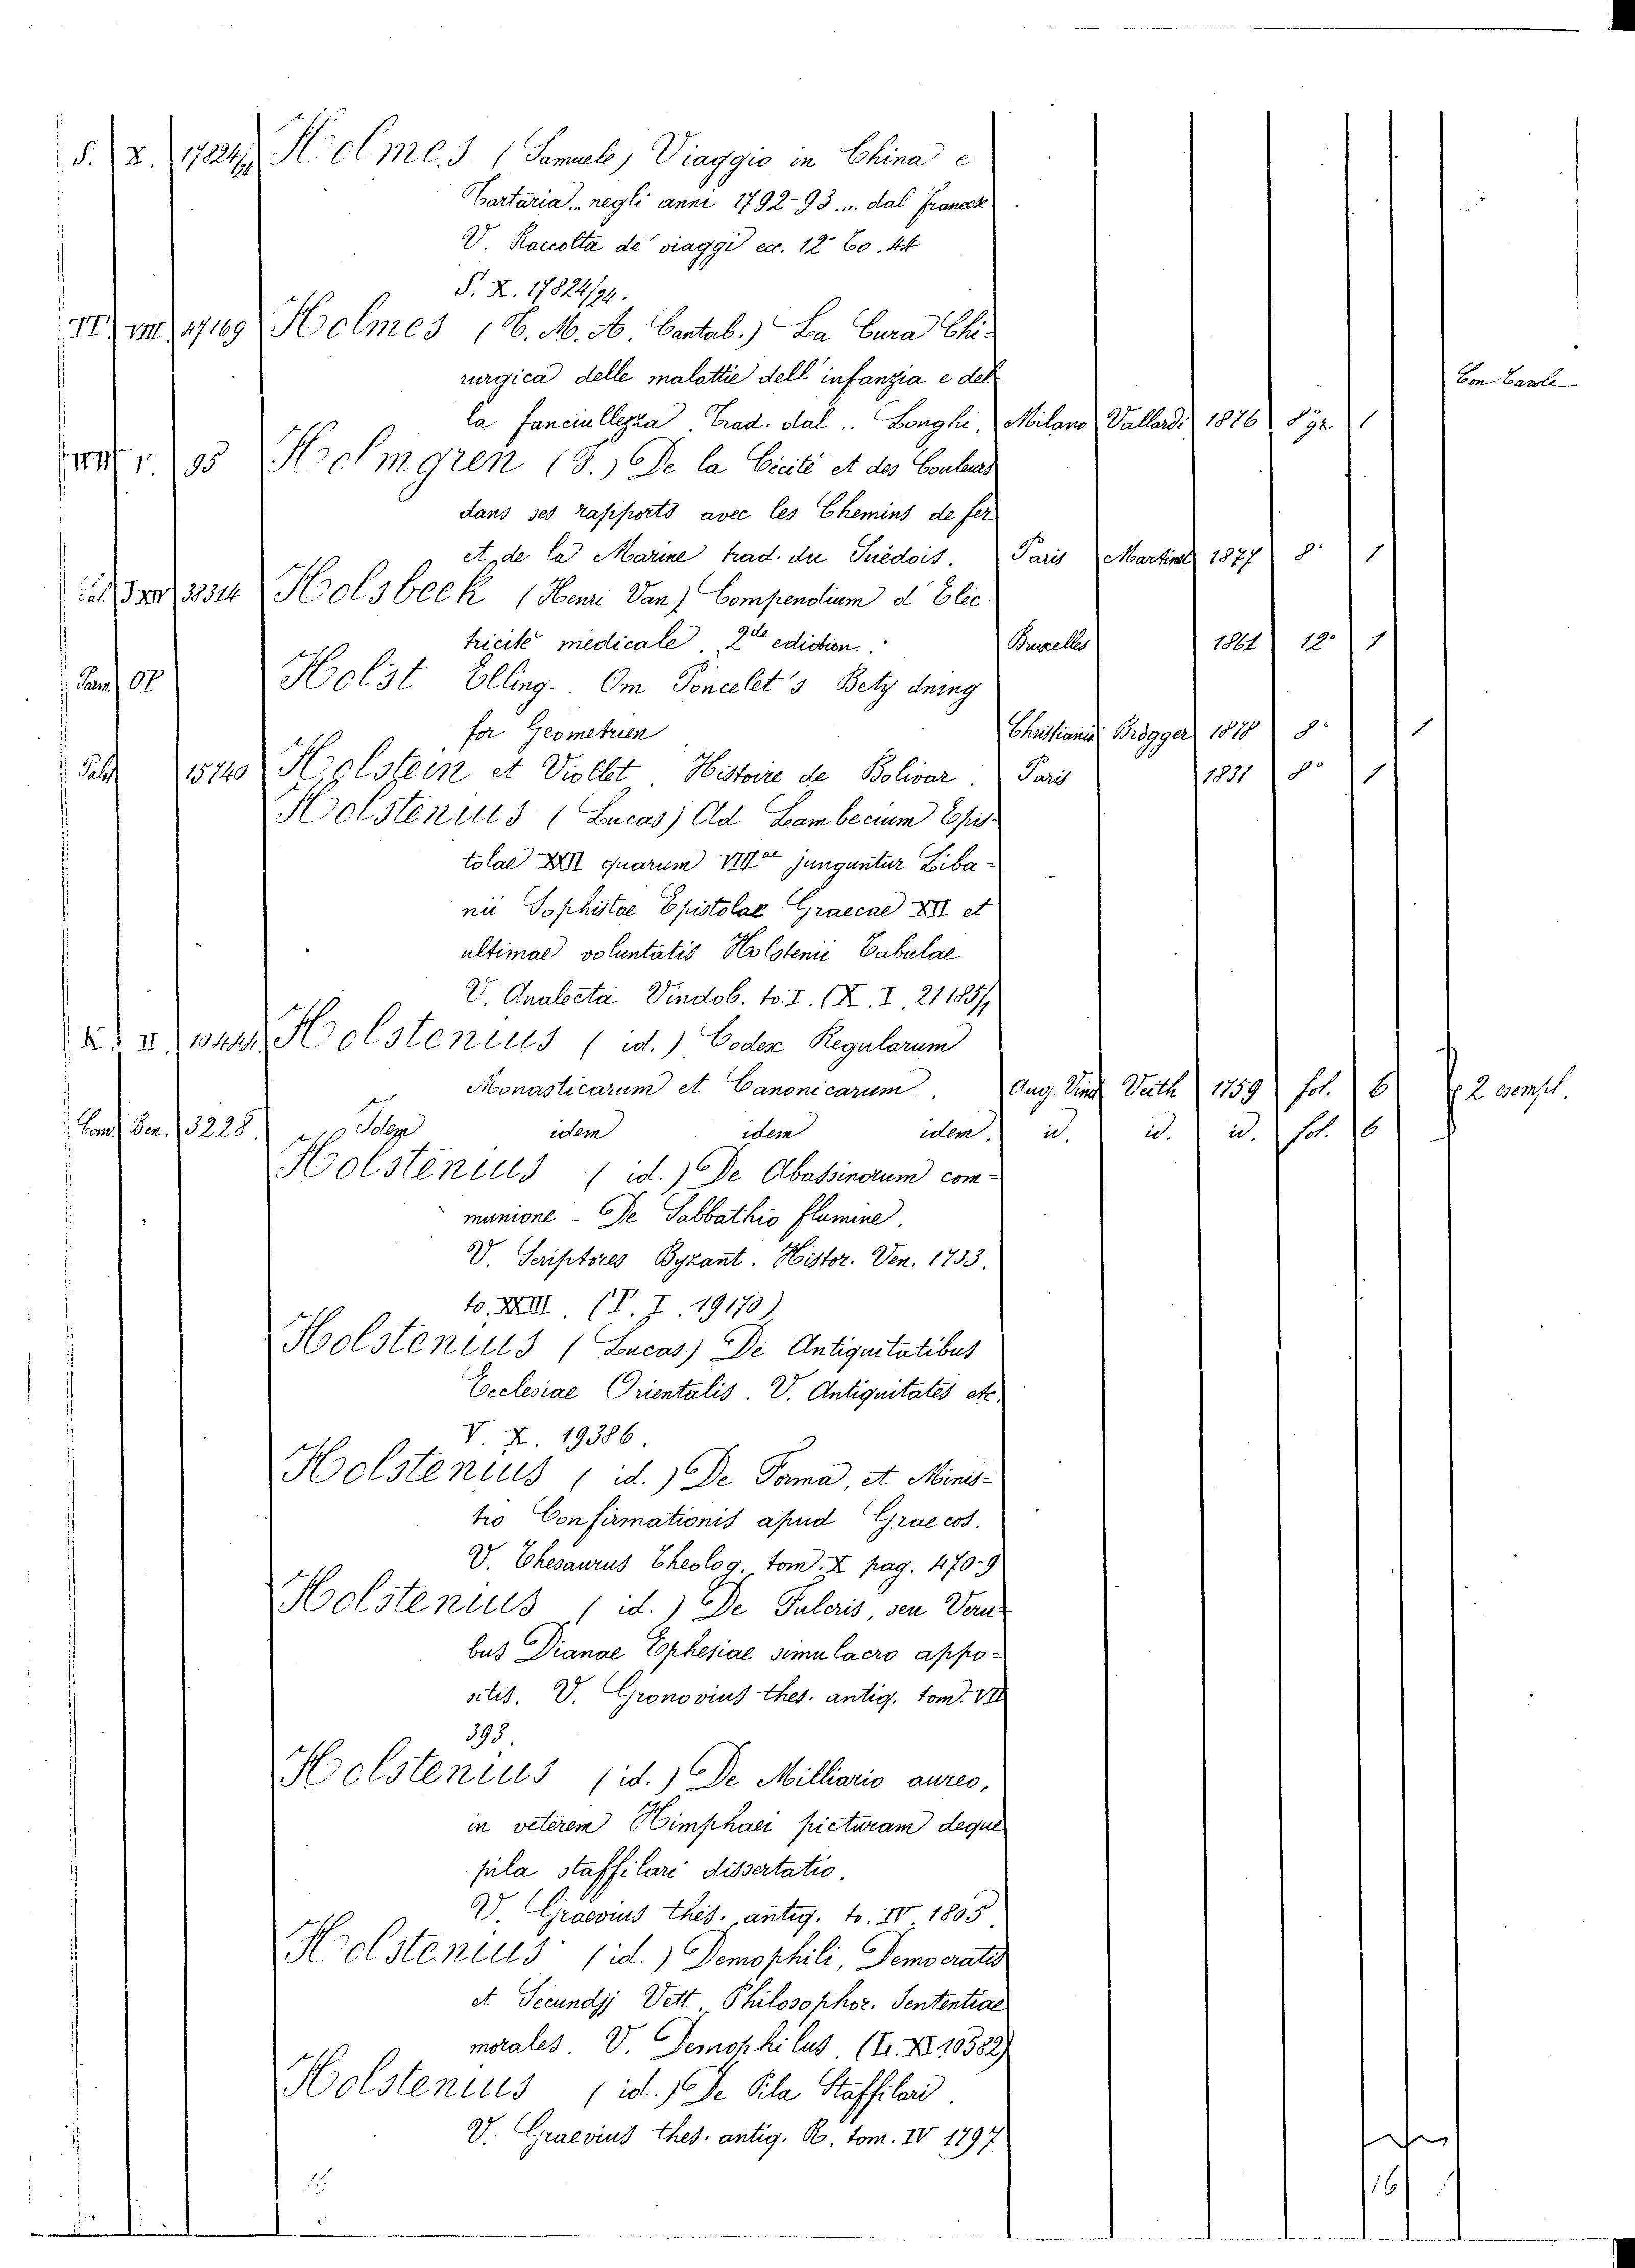 S. X. 17824/94 Holmes (Samuele) Viaggio in China e
Tartaria... negli anni 1792-93 ... dal
V. Raccolta de' viaggi ec. 12º to. 44
S. X. 17824/94.
VIII 47169 Holmes (T. M. A. Cantab.) La Cura Chi-
rurgica delle malattie dell'infanzia e del-
la fanciullezza. Trad. dal .. Longhi. Milano Vallardi 1876 8º gr. 1 Con tavole
V. 95 Holmgren (F.) De la Cécité et des Couleurs
dans ses rapports avec les Chemins de fer
et de la Marine trad. du Suédois. Paris Martinet 1877 8º 1
38314 Holsbeek (Henri Van) Compendium d'Elec-
tricité medicale, 2de edidion. Bruxelles 1861 12º 1
Holst Elling. Om Poncelet's Betydning
for Geometrien Christiania Brögger 1878 8º 1
15740 Holstein et Viollet. Histoire de Bolivar. Paris 1831 8º 1
Holstenius (Lucas) Ad Lambecium Epis-
tolae XXII quarum VIIIae junguntur Liba-
nii Sophistae Epistolae Graecae XII et
ultimae voluntatis Holstenii Tabulae
V. Analecta Vindob. to. I. (X. I. 21185/
X. II. Holstenius (id.) Codex Regularum
Monasticarum et Canonicarum. Aug. Vind Veith 1759 fol. 6 2 esempl.
Ven. 3228. idem idem idem. id. id. id. fol. 6
Holstenius (id.) De Abassinorum com-
munione - De Sabbathio flumine.
V. Scriptores Byzant. Histor. Ven. 1733.
to. XXIII. (T. I. 19170)
Holstenius (Lucas) De Antiquitatibus
Ecclesiae Orientalis. V. Antiquitates etc.
V. X. 19386.
Holstenius (id.) De Forma, et Minis-
tro Confirmationis apud Graecos.
V. Thesaurus Theolog. tom. X pag. 470-9
Holstenius (id.) De Fulcris, seu Veru-
bus Dianae Ephesiae simulacro appo-
sitis. V. Gronovius thes. antiq. tom. VII
393.
Holstenius (id.) De Milliario aureo,
in veterem Nimphaei picturam deque
pila staffilari dissertatio.
V. Graevius thes. antiq. to. IV 1805
Holstenius (id.) Demophili, Democratis
et Secundji Vett. Philosophor. Sententiae
morales. V. Demophilus. 10382)
Holstenius (id.) De Pila Staffilari.
V. Graevius thes. antiq. R. tom. IV 1797
16